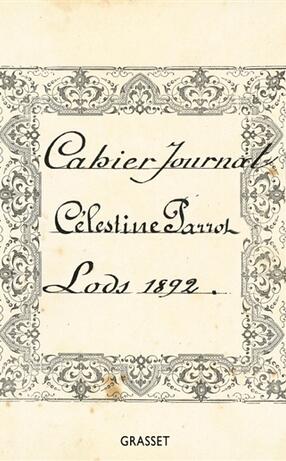 Cahier Journal
Célestine Parrot
Lods 1892.
GRASSET